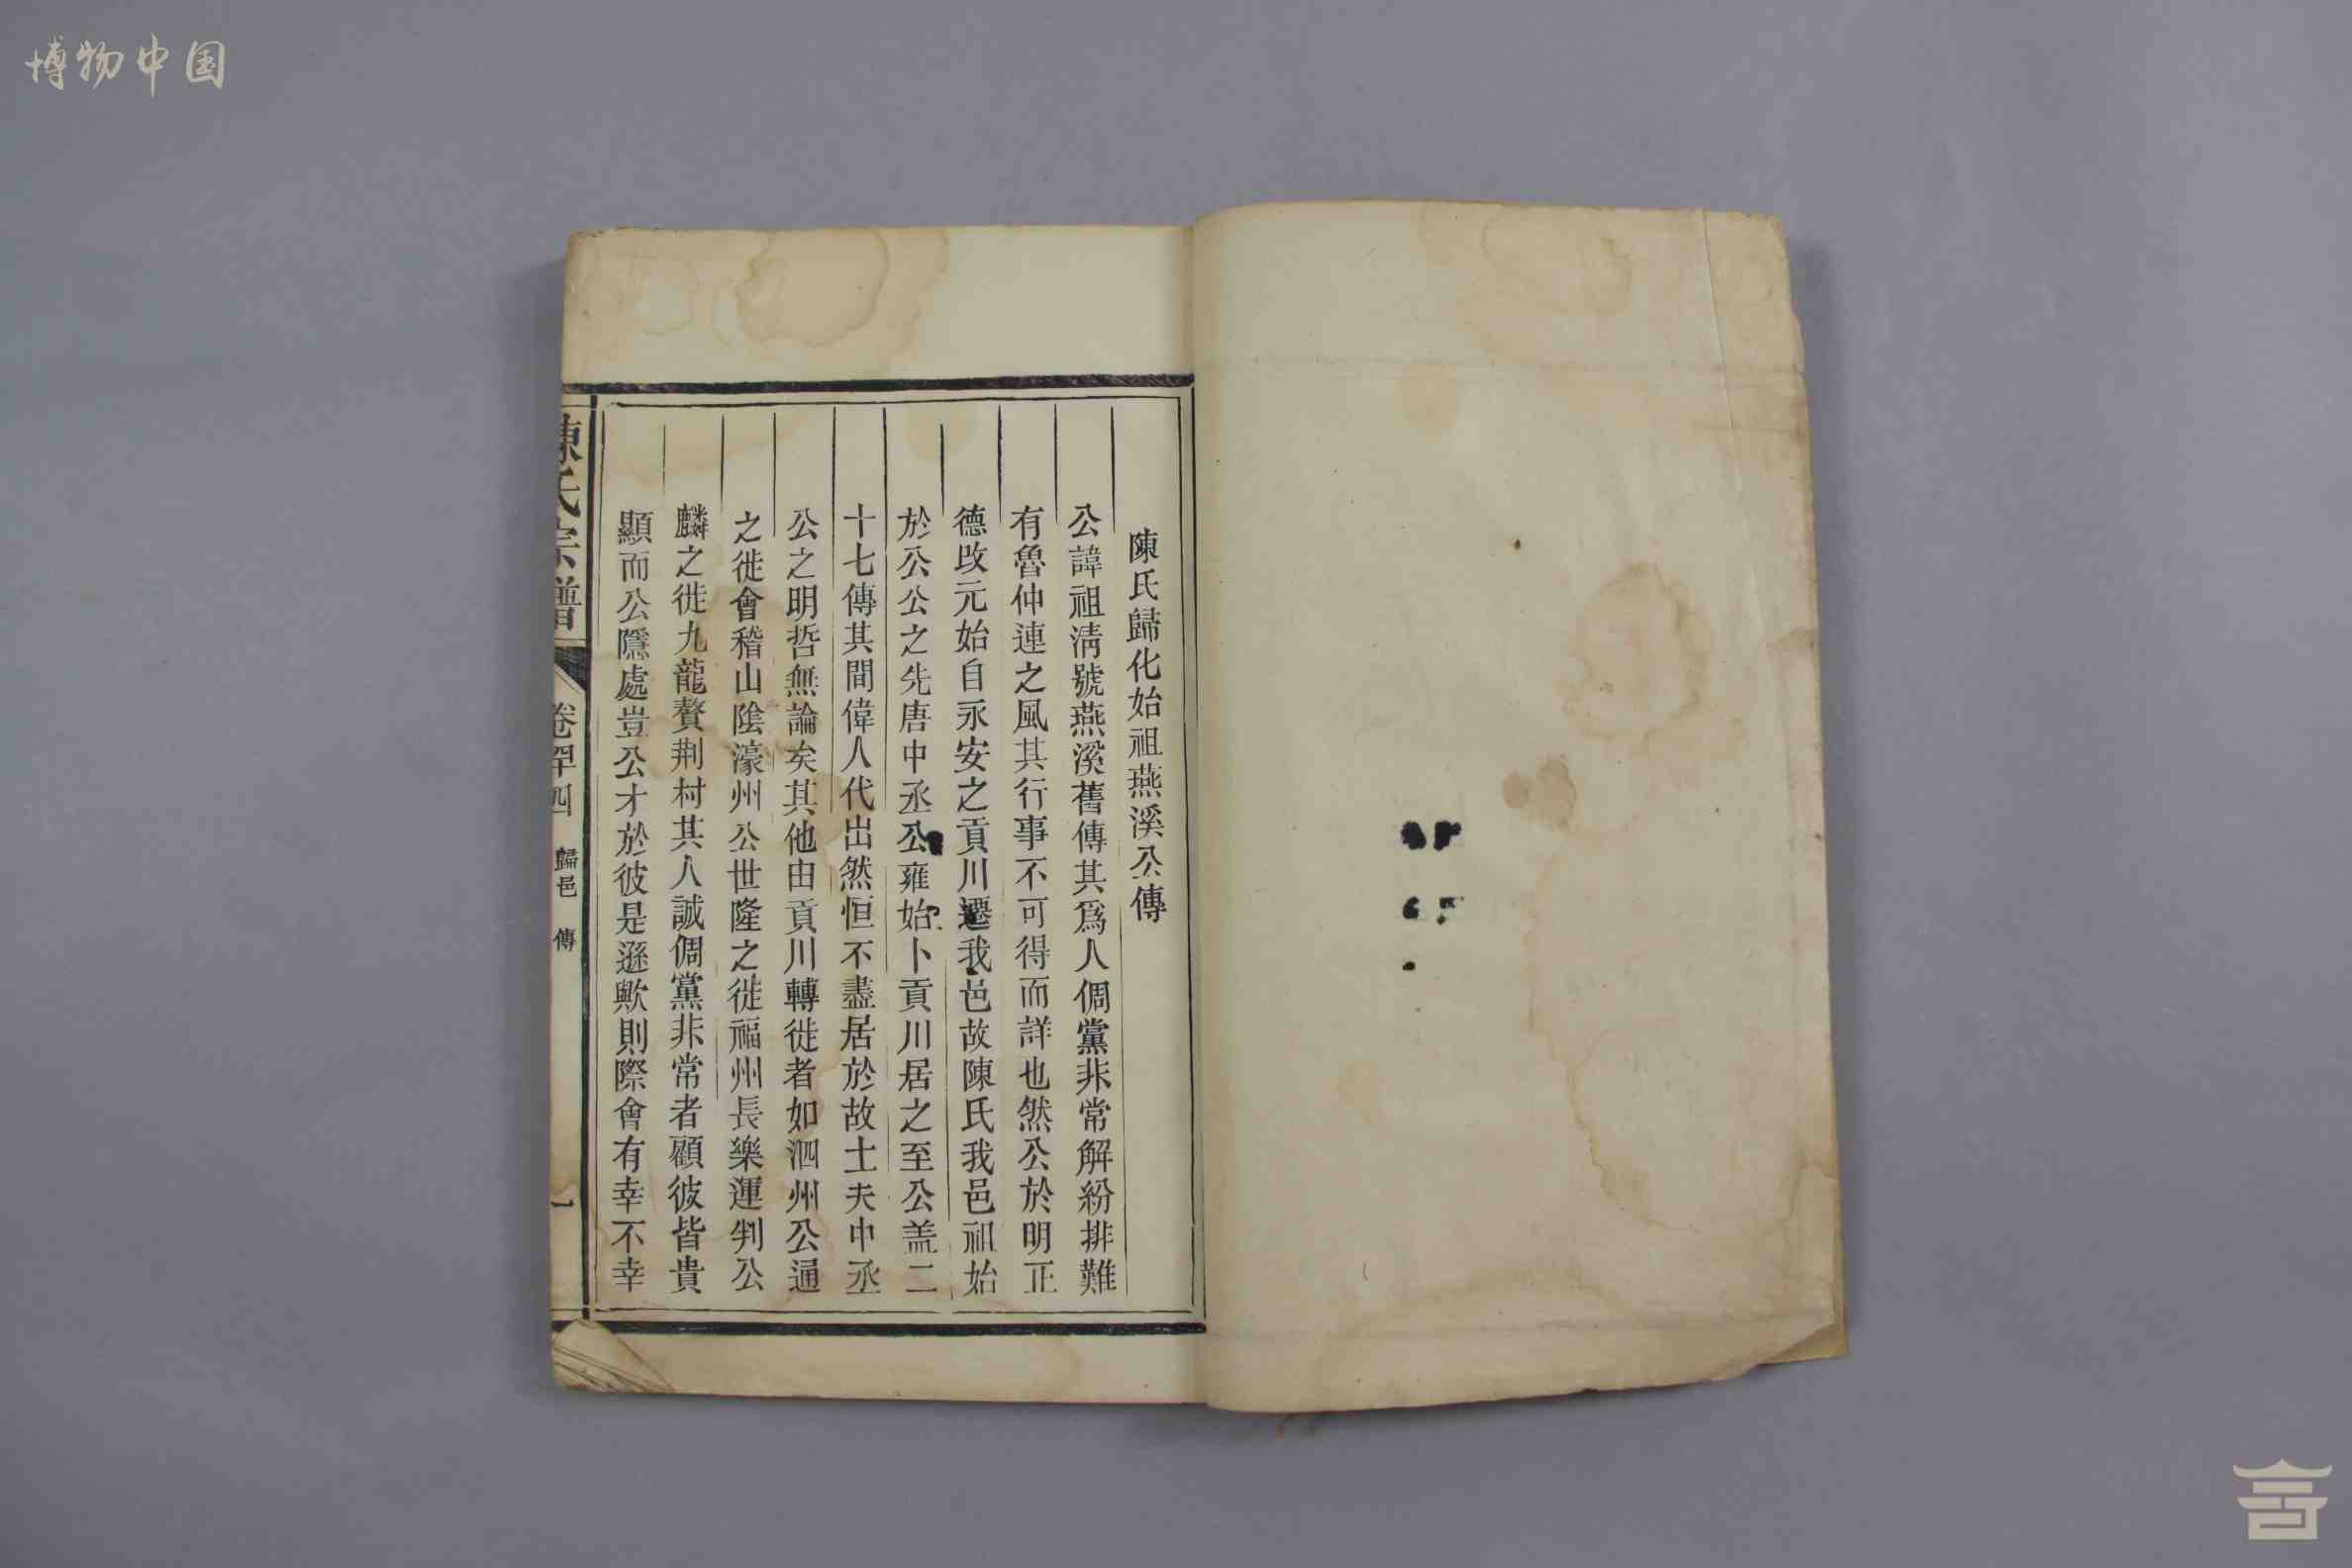 博物中国
陳氏歸化始祖燕溪公傳
公諱祖淸號燕溪舊傳其爲人倜黨非常解紛排難
有魯仲連之風其行事不可得而詳也然公於明正
德改元始自永安之貢川遷我邑故陳氏我邑祖始
於公公之先唐中丞公雍始卜貢川居之至公盖二
十七傳其間偉人代出然恒不盡居於故土夫中丞
公之明哲無論矣其他由貢川轉徙者如泗州公通
之徙會稽山陰濠州公世隆之徙福州長樂運判公
麟之徙九龍贅荆村其人誠倜黨非常者顧彼皆貴
顯而公隱處豈公才於彼是遜歟則際會有幸不幸
陳氏宗譜 卷四 歸邑 傳 一